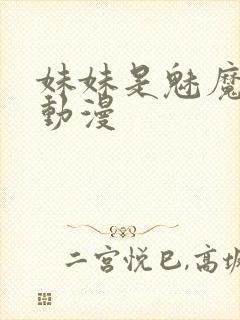 妹妹是魅魔
動漫
二宮悅巳,高坂